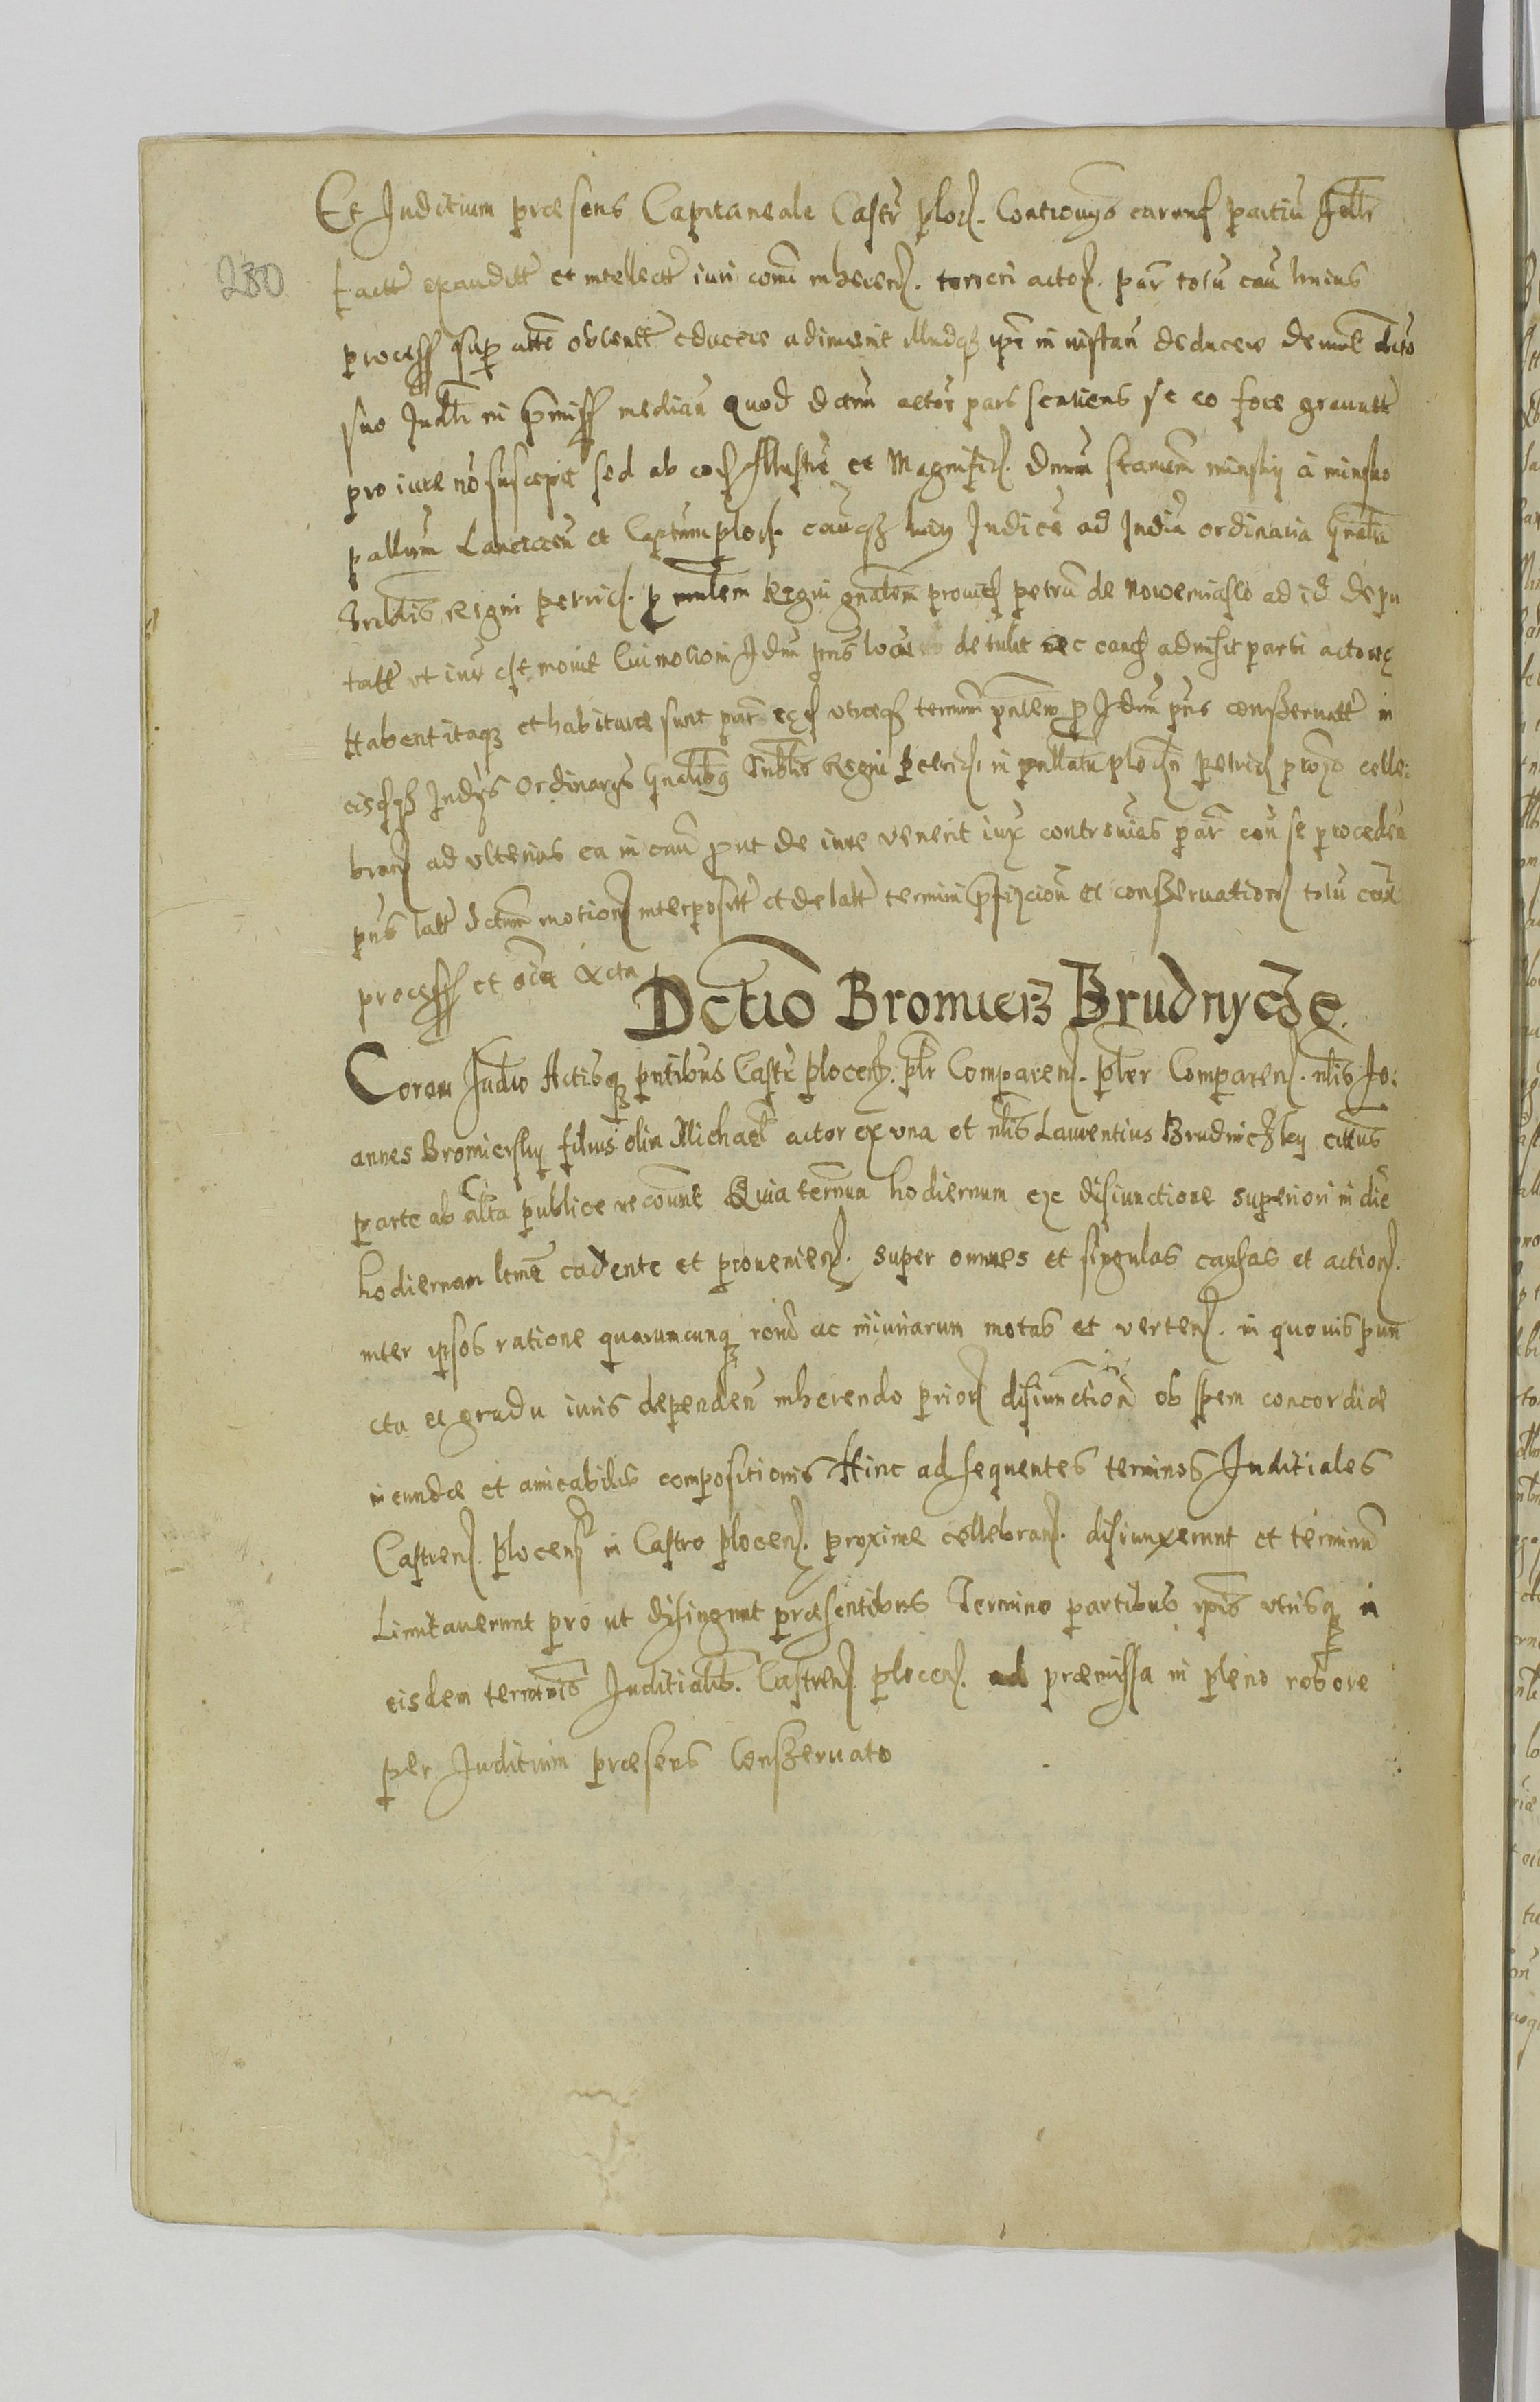 280
Et Juditium præsens Capitaneale Castr ploc. Controuijs earund partiu
factt exauditt et intellectt iuri comi inheren. actor. par totu cau huius
process sup educere adinuenit illudqz ipi in instan deducere decreto
suo Judli in pmiss median Quod dctm actor pars sentiens se eo fore grauatt
pro iure nõ suscepit sed ab eod Illustri et Magnific. Dnum Stanum minsky â minsko
pallum Lancicien et Captum ploc. cauqz huiq Judice ad Judia ordinaria Gnalia
Tribtis Regni petric. p mnlem Regni gnalem prouid petru de Nowemiasto ad id depu
tatt ut iur est mouit Cui motioni Jdiu pns locu detulit nec eand admisit parti actoreę
Habent itaqz et habiture sunt par utreqz termum pntem p Jdiu pns conseruatt in
eisdqz Judijs Ordinarijs Gnalibq Tribtis Regni Petric. in pallatu plocn petric proxo celle:
bran ad ulterius ea in cau put de iure uenerit iux controuias par con se proceden
pns latt dctum motion interpositt et delatt termini pfixcion et conseruation totu cau
process et oia acta
Dctio Bromiers Brudnyczę.
Coram Judio Actisqz pntibus Castr plocen. plr Comparen. plter Comparen. nlis Jo:
annes Bromiersky filius olim Michael actor ex una et nlis Laurentius Brudniczky cittus
parte ab alta publice recount Quia termum hodiernum ex disiunctione superiori in die
hodiernam ltme cadente et prouenien. super omnes et singulas causas et action.
inter ipsos ratione quarumcunqz roнu ac iniuriarum motas et verten. in quouis pun
cto et gradu iuris dependen inherendo prior disiunction ob spem concordiæ
ineundæ et amicabilis compositionis Hinc ad sequentes terminos Juditiales
Castren. plocens in Castro plocen. proxime cellebran. disiunxerunt et terminu
Limitauerunt pro ut disiungunt præsentibus Termino partibus ipis utrisqz in
eisdem terminis Juditialib. Castren. plocen. ad præmissa in pleno robore
per Juditium præsens Conseruato